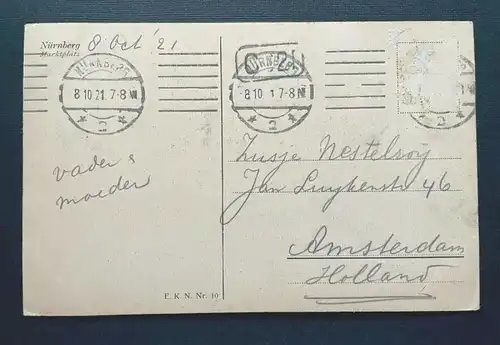 Nürnberg
Marktplatz
8 Oct '21
NÜRNBERG
8.10.21.7-8N
* 2 *
NÜRNBERG
8.10 1.7-8N
* 2 *
2
vader &
moeder
Zusje Nestelroy
Jan Luykenstr 46
Amsterdam
Holland
E. K. N. Nr. 10